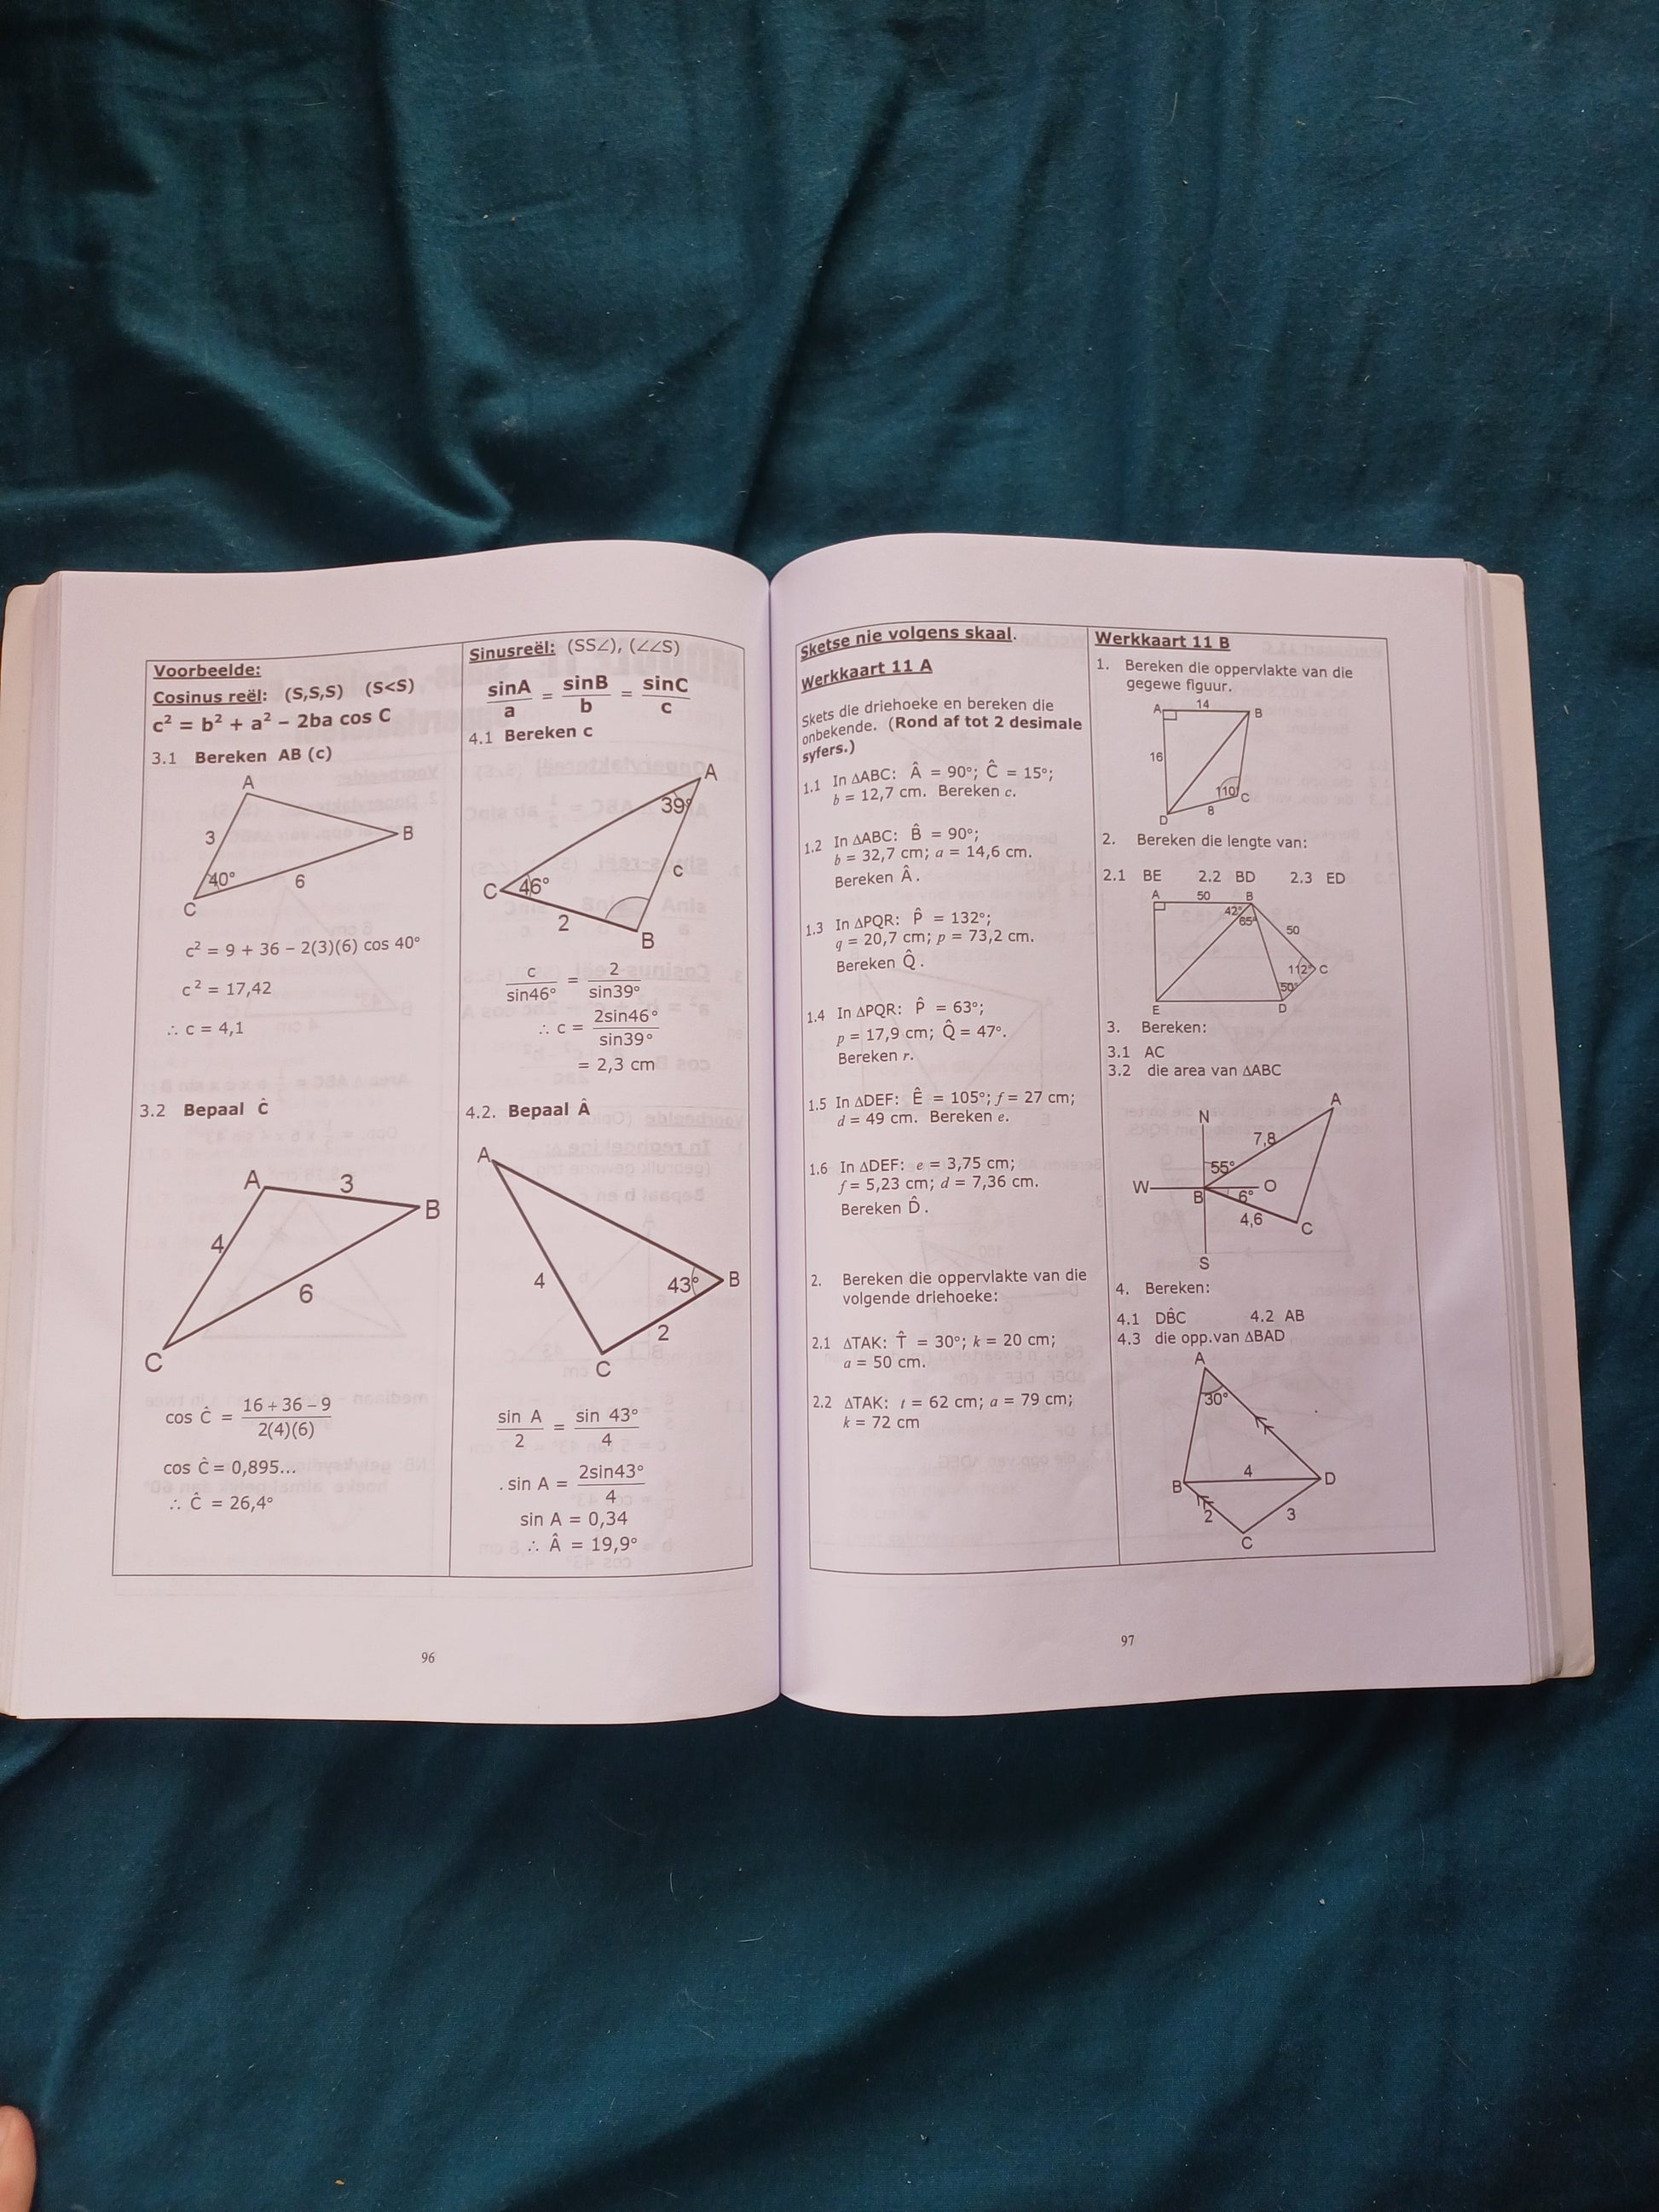 Voorbeelde:
Cosinus reël: (S,S,S) (S<S)
c² = b² + a² – 2ba cos C
3.1 Bereken AB (c)
A
3
B
40°
6
C
c² = 9 + 36 – 2(3)(6) cos 40°
c² = 17,42
∴ c = 4,1
3.2 Bepaal Ĉ
A
3
B
4
6
C
cos Ĉ = (16 + 36 – 9)/(2(4)(6))
cos Ĉ = 0,895...
∴ Ĉ = 26,4°
Sinusreël: (SS∠), (∠∠S)
sinA/a = sinB/b = sinC/c
4.1 Bereken c
A
39°
c
C 46°
2
B
c/sin46° = 2/sin39°
∴ c = 2sin46°/sin39°
= 2,3 cm
4.2. Bepaal Â
A
4
43° B
2
C
sin A/2 = sin 43°/4
. sin A = 2sin43°/4
sin A = 0,34
∴ Â = 19,9°
96
Sketse nie volgens skaal.
Werkkaart 11 A
Skets die driehoeke en bereken die
onbekende. (Rond af tot 2 desimale
syfers.)
1.1 In ∆ABC: Â = 90°; Ĉ = 15°;
b = 12,7 cm. Bereken c.
1.2 In ∆ABC: B̂ = 90°;
b = 32,7 cm; a = 14,6 cm.
Bereken Â.
1.3 In ∆PQR: P̂ = 132°;
q = 20,7 cm; p = 73,2 cm.
Bereken Q̂.
1.4 In ∆PQR: P̂ = 63°;
p = 17,9 cm; Q̂ = 47°.
Bereken r.
1.5 In ∆DEF: Ê = 105°; f = 27 cm;
d = 49 cm. Bereken e.
1.6 In ∆DEF: e = 3,75 cm;
f = 5,23 cm; d = 7,36 cm.
Bereken D̂.
2. Bereken die oppervlakte van die
volgende driehoeke:
2.1 ∆TAK: T̂ = 30°; k = 20 cm;
a = 50 cm.
2.2 ∆TAK: t = 62 cm; a = 79 cm;
k = 72 cm
Werkkaart 11 B
1. Bereken die oppervlakte van die
gegewe figuur.
A 14 B
16
110° C
D 8
2. Bereken die lengte van:
2.1 BE 2.2 BD 2.3 ED
A 50 B
42°
65° 50
112° C
50°
E D
3. Bereken:
3.1 AC
3.2 die area van ∆ABC
N A
7,8
55°
W B 6° O
4,6 C
S
4. Bereken:
4.1 DB̂C 4.2 AB
4.3 die opp.van ∆BAD
A
30°
4
B D
2 3
C
97